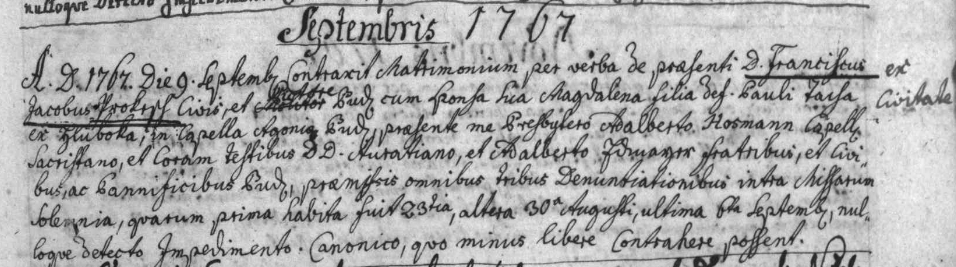 nulloque detecto
Septembris 1767
A. D. 1767. Die 9. Septemb. Contraxit Matrimonium per verba de præsenti D. Franciscus ex
Jacobus Civis, et Bud, cum Sponsa sua Magdalena filia def. Pauli Civitate
ex Hluboka, in Capella Agoniæ Bud, præsente me Presbytero Adalberto Hosmann Capell.
Sacristano, et Coram testibus DD. Auratiano, et Adalberto Idmayer fratribus, et Civi-
bus, ac Pannificibus Bud, præmissis omnibus tribus Denuntiationibus intra Missarum
solemnia, quarum prima habita fuit 23tia, altera 30a Augusti, ultima 6ta Septemb, nul-
loque detecto Impedimento Canonico, quo minus libere Contrahere possent.